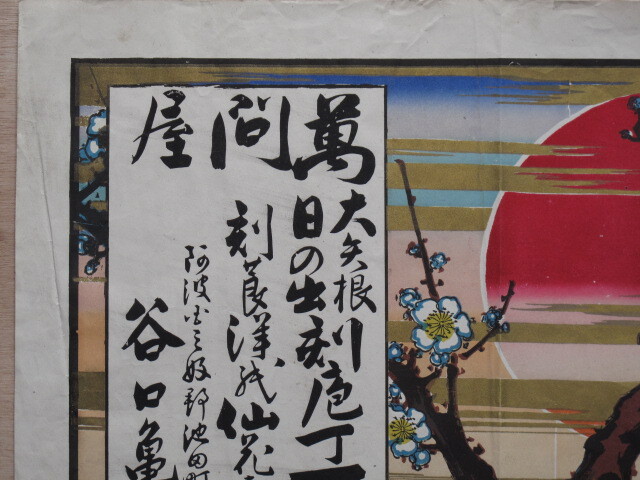 萬問屋
大矢根川
日の出刻庖丁一
刻莨洋
仙花
阿波
郡池田町
谷口亀